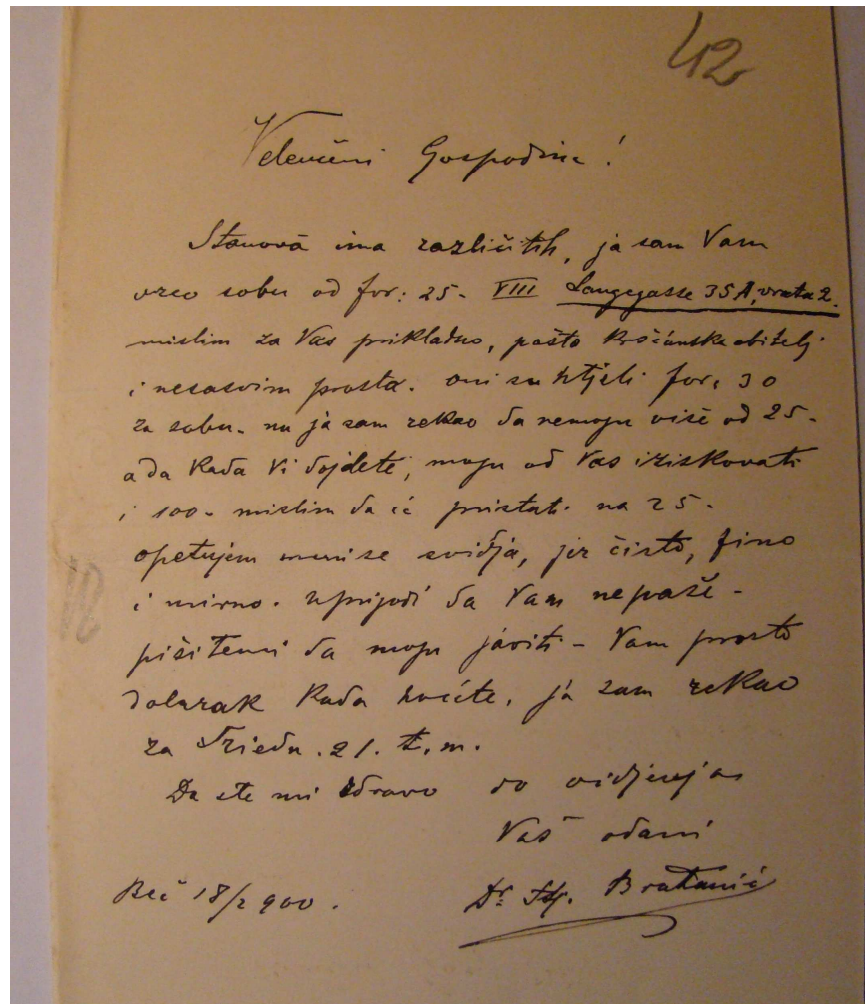 42
Veleučeni Gospodine!
Stanova ima različitih, ja sam Vam
uzeo sobu od for: 25- VIII Langegasse 35A, vrata 2.
mislim za Vas prikladno, pošto kršćanska obitelj
i nesasvim prosta. oni su htjeli for. 30
za sobu. nu ja sam rekao da nemogu više od 25-
a da kada Vi dojdete, mogu od Vas iziskovati
i 100- mislim da će pristati na 25-
opetujem meni se svidja, jer čisto, fino
i mirno. u prigodi da Vam nepaše-
pišite mi da mogu javiti - Vam prosto
dolazak kada hoćete, ja sam rekao
za Sriedu. 21. t. m.
Da ste mi zdravo do vidjenja
Vaš odani
Beč 18/2 900. Dr. Stj. Bratanić